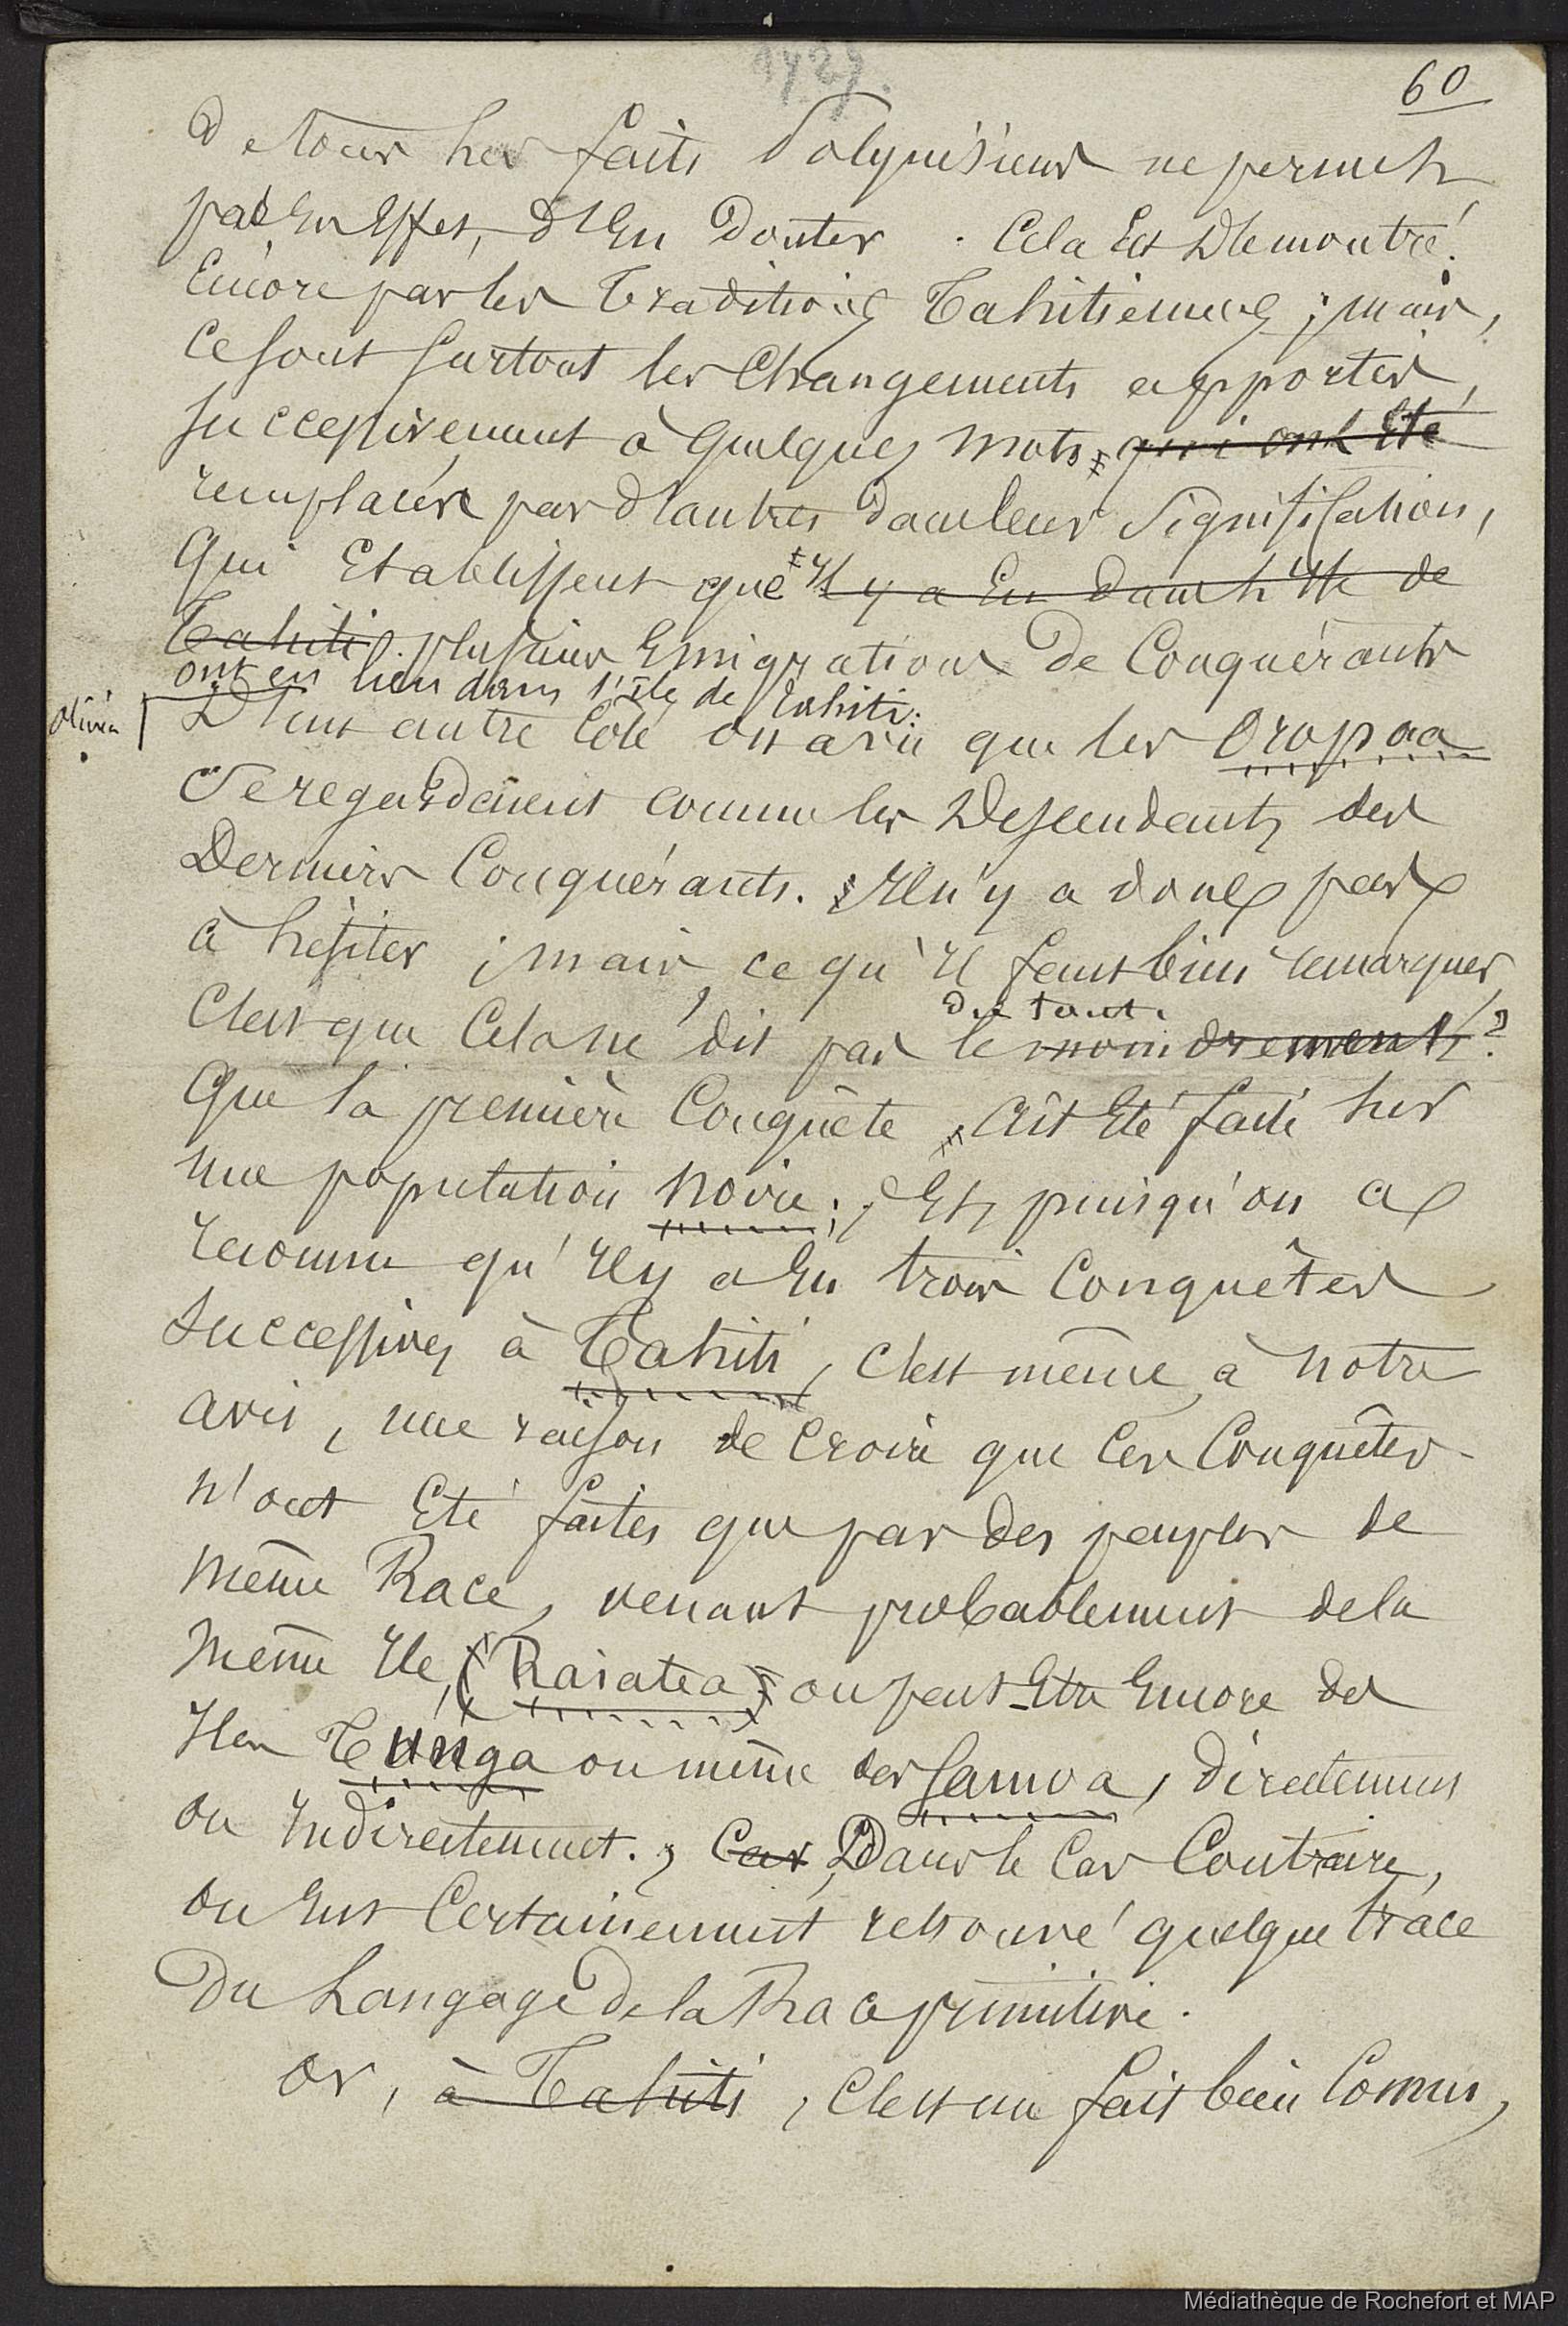 1429.
60
De tous les faits Polynésiens ne permet
pas En Effet, d'En Douter. Cela Est Démontré
Encore par les Traditions Tahitiennes ; mais,
Ce sont surtout les Changements apportés,
successivement à quelques mots, qui ont Eté
remplacés par d'autres dans leur Signification,
Qui Etablissent que Il y a Eu dans l'Ile de
Tahiti. plusieurs Emigrations de Conquérants
ont eu lieu dans l'île de Tahiti.
D'un autre Côté on a vu que les Oropaa
Se regardaient comme les Descendants des
Derniers Conquérants. Il n'y a donc pas
à hésiter ; mais, ce qu'Il faut bien remarquer
du tout.
C'est que Cela ne dit pas le moindrement ?
Que la première Conquête, Ait Eté faite sur
une population noire ; Et, puisqu'on a
reconnu qu'Il y a Eu trois Conquêtes
Successives à Tahiti, C'est même, à notre
avis, une raison de Croire que Ces Conquêtes
n'ont Eté faites que par des peuples de
même Race, venant probablement de la
même Ile, (Raiatea) ou peut-Etre Encore des
Iles Tunga ou même des Samoa, directement
ou Indirectement. Car Dans le Cas Contraire,
on Eut Certainement retrouvé quelque trace
Du Langage De la Race primitive.
Or, à Tahiti, C'est un fait bien Connu,
Médiathèque de Rochefort et MAP